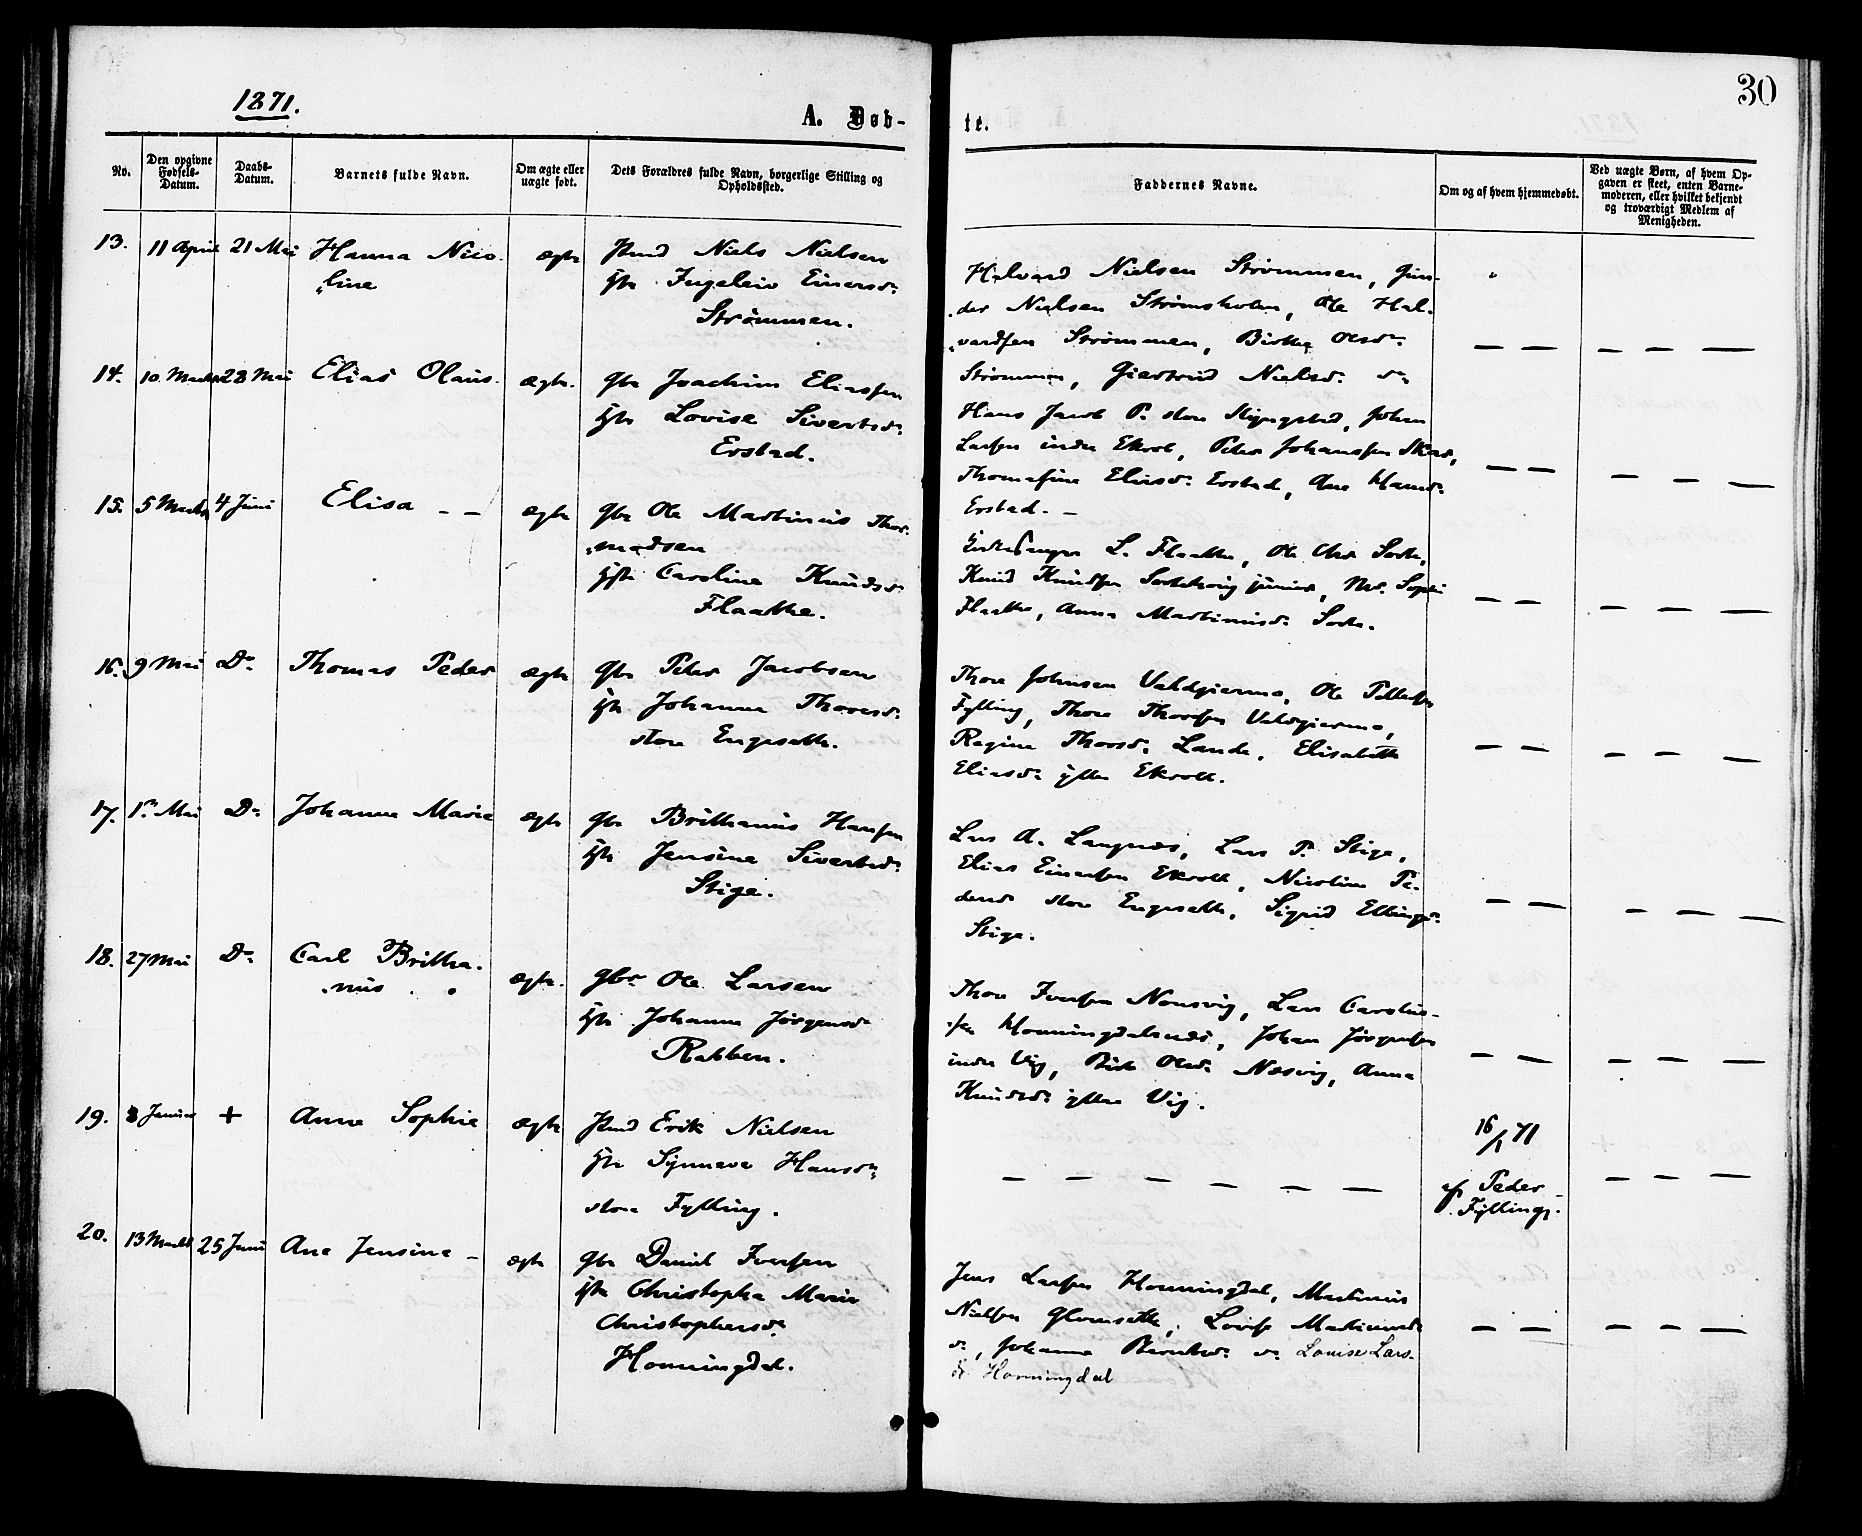 1871.
A. Døb-
te.
30
No.
Den opgivne Fødsels-Datum.
Daabs-Datum.
Barnets fulde Navn.
Om ægte eller uægte født.
Dets Forældres fulde Navn, borgerlige Stilling og Opholdssted.
Faddernes Navne.
Om og af hvem hjemmedøbt.
Ved uægte Børn, af hvem Op-
gaven er skeet, enten Barne-
moderen, eller hvilket bekjendt
og troværdigt Medlem af
Menigheden.
13. 11 April 21 Mai Hanna Nico- ægte Niels Nielsen
line Ingeleiv Einersdr
Strømmen.
Halvard Nielsen Strømmen, Gun-
der Nielsen Strømsholm, Ole Hal-
vardsen Strømmen, Birthe Olsdr
Strømmen, Giertrud Nielsdr dr
14. 10. Marts 28 Mai Elias Olaus. ægte. Gbr Joachim Eliassen
Lovise Sivertsdr
Erstad.
Hans Jacob P. store Johan
Larsen indre Ekrol, Peter Johanssen
Thomasine Eliasdr Erstad, Ane Hansdr
Erstad. –
15. 5 Marts 4 Juni Elisa – – ægte Gbr Ole Martinus Thor-
modsen
Caroline Knudsdr
Flaathe.
L. Flaathe, Ole
Knud Knudsen junior,
Flaathe, Anna Martinusdr
16. 9 Mai Do Thomas Peder ægte Gbr Peter Jacobsen
Johanne Thoresdr
store Engesæth.
Thore Johnsen Valdgierma, Ole Pettersen
Fylling, Thore Thoresen Valdgierma,
Regine Thoresdr Lande, Elisabeth
Eliasdr ytre Ekroll.
17. Mai Do Johanne Marie ægte Gbr Brithanus Hansen
Jensine Sivertsdr
Stige.
Lars A. Langnæs, Lars P. Stige,
Elias Einersen Ekroll, Nicoline Pe-
dersdr store Engesæth, Sigrid Ellingsdr
Stige.
18. 27 Mai Do Carl Britha- ægte. Gbr Ole Larsen
nus Johanne Jørgensdr
Rabben.
Thore Iversen Nonsvig, Lars Carolus-
sen Honningdalsnæs, Johan Jørgensen
indre Vig, Olsdr Næsvig, Anna
Knudsdr ytre Vig.
19. 8 Januar + Anne Sophie ægte Erik Nielsen
Synneve Hansdr
store Fylling.
16/1 71
af Peder
Fylling.
20. 13 Marts 25 Juni Ane Jensine – ægte Gbr Daniel Iversen
Christopha Marie
Christophersdr
Honningdal.
Jens Larsen Honningdal, Martinus
Nielsen Glomsæth, Lovise Martinusdr
dr, Johanne Berntsdr dr Louise Lars-
dr Honningdal